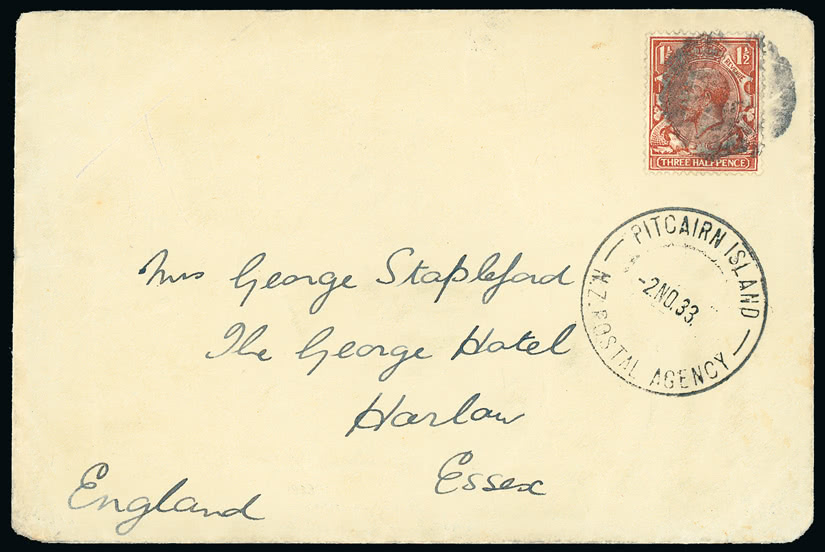 1½ 1½
REVENUE
THREE HALFPENCE
PITCAIRN ISLAND
-2 NO.33.
N.Z. POSTAL AGENCY
Mrs George Stapleford
The George Hotel
Harlow
Essex
England